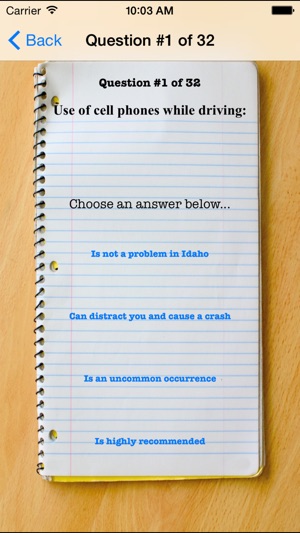 Carrier 10:03 AM
Back Question #1 of 32
Question #1 of 32
Use of cell phones while driving:
Choose an answer below...
Is not a problem in Idaho
Can distract you and cause a crash
Is an uncommon occurrence
Is highly recommended